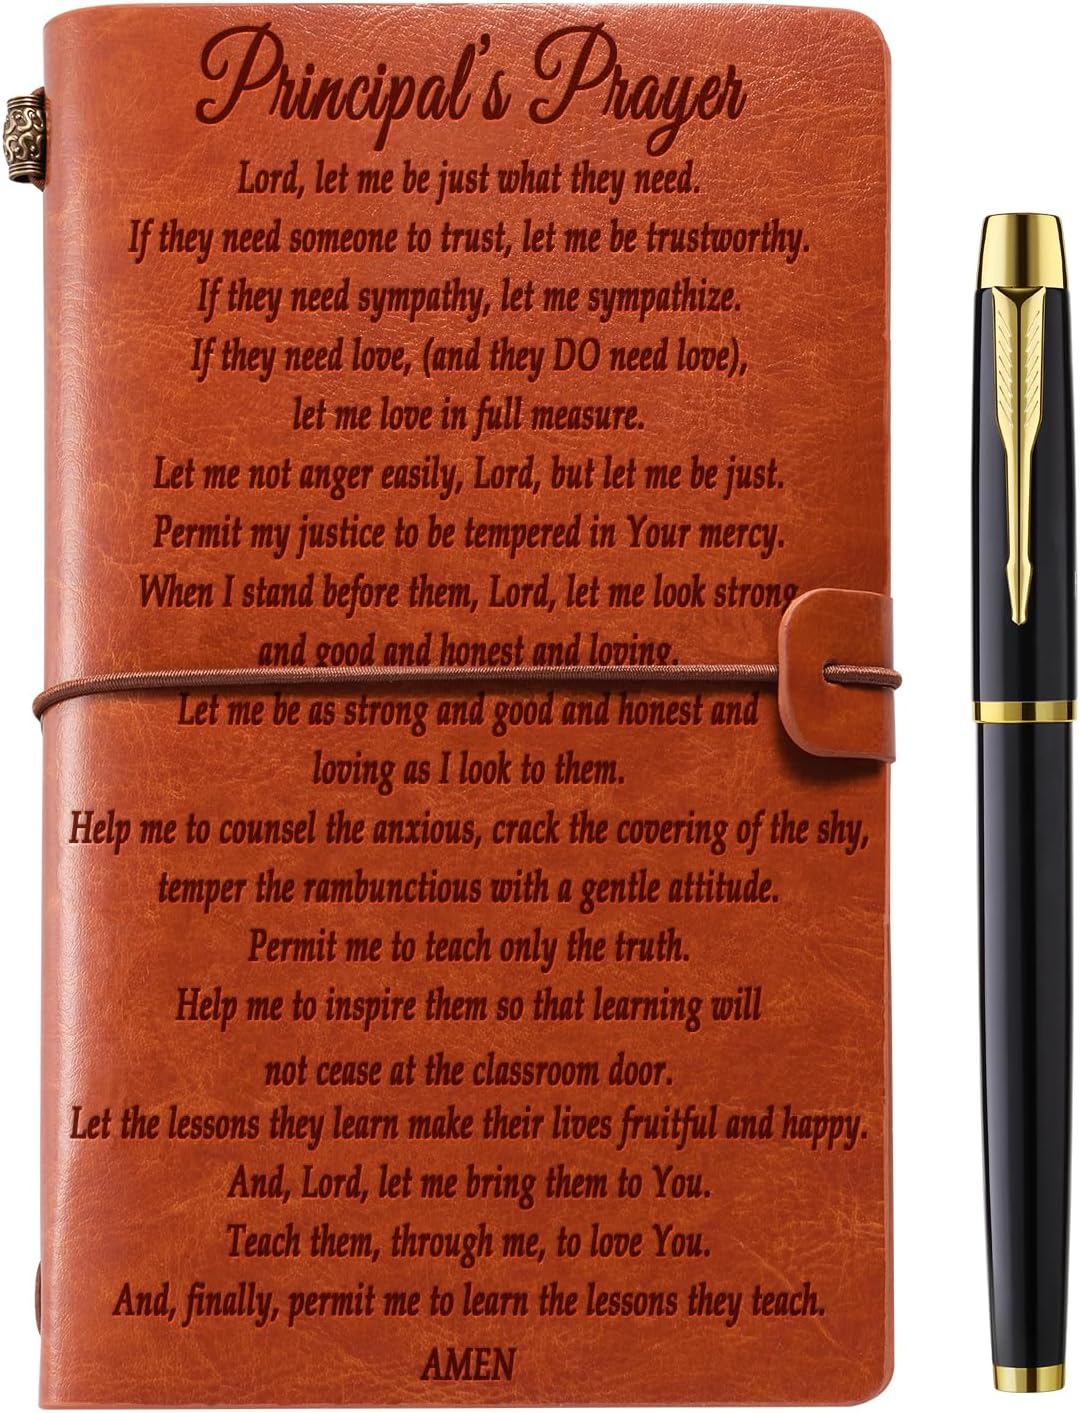 Principal's Prayer
Lord, let me be just what they need.
If they need someone to trust, let me be trustworthy.
If they need sympathy, let me sympathize.
If they need love, (and they DO need love),
let me love in full measure.
Let me not anger easily, Lord, but let me be just.
Permit my justice to be tempered in Your mercy.
When I stand before them, Lord, let me look strong
and good and honest and loving.
Let me be as strong and good and honest and
loving as I look to them.
Help me to counsel the anxious, crack the covering of the shy,
temper the rambunctious with a gentle attitude.
Permit me to teach only the truth.
Help me to inspire them so that learning will
not cease at the classroom door.
Let the lessons they learn make their lives fruitful and happy.
And, Lord, let me bring them to You.
Teach them, through me, to love You.
And, finally, permit me to learn the lessons they teach.
AMEN